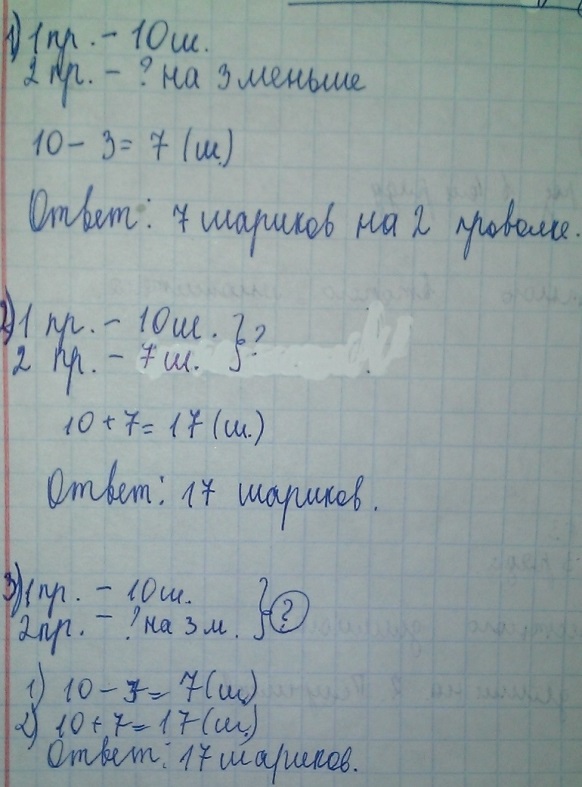 1) 1 пр. - 10 ш.
2 пр. - ? на 3 меньше
10 - 3 = 7 (ш.)
Ответ: 7 шариков на 2 проволке.
2) 1 пр. - 10 ш. } ?
2 пр. - 7 ш.
10 + 7 = 17 (ш.)
Ответ: 17 шариков.
3) 1 пр. - 10 ш. } ?
2 пр. - ? на 3 м.
1) 10 - 3 = 7 (ш.)
2) 10 + 7 = 17 (ш.)
Ответ: 17 шариков.